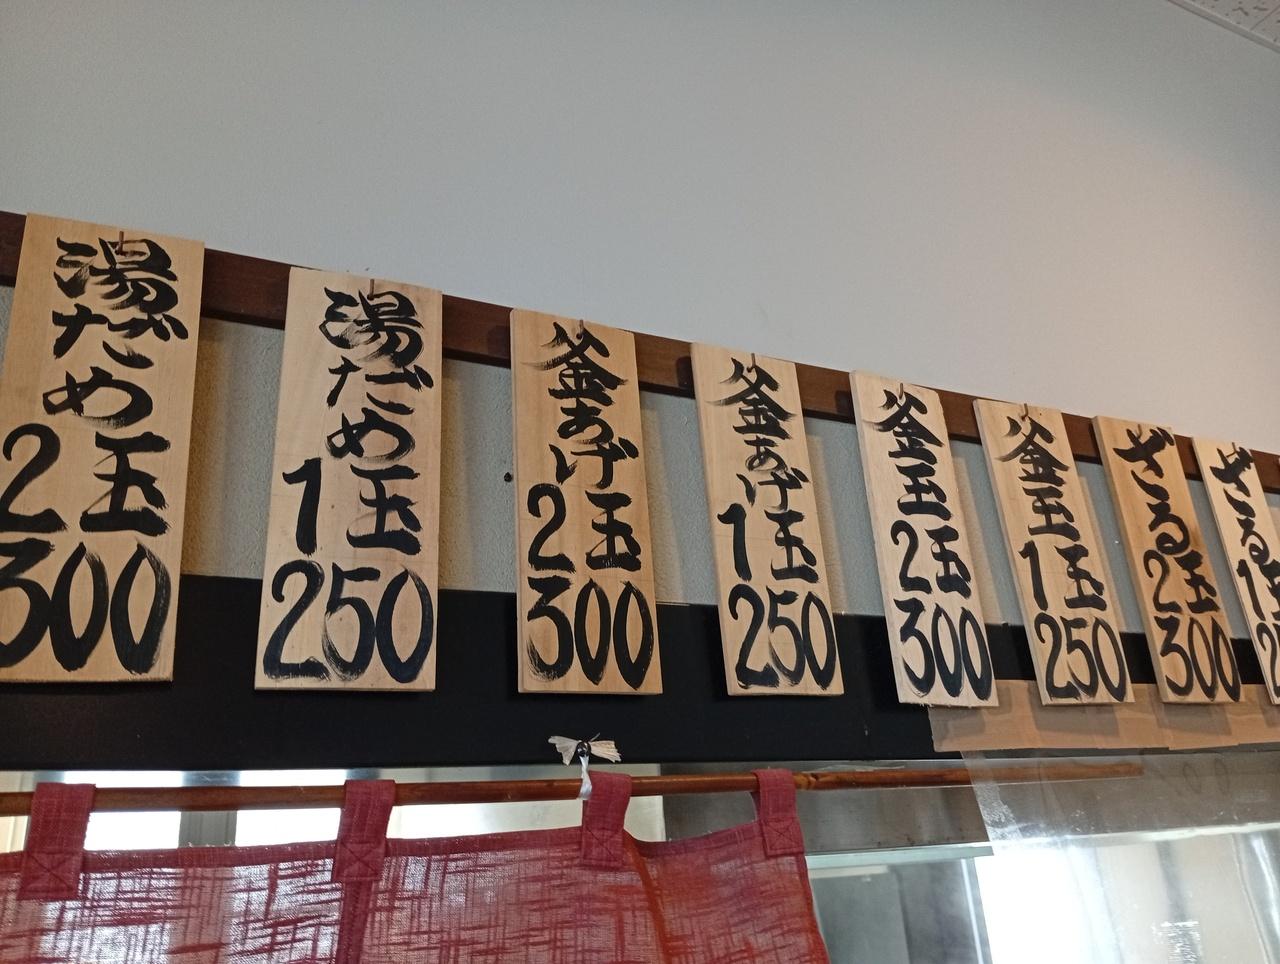 湯だめ
2玉
300
湯だめ
1玉
250
釜あげ
2玉
300
釜あげ
1玉
250
釜玉
2玉
300
釜玉
1玉
250
ざる
2玉
300
ざる
1玉